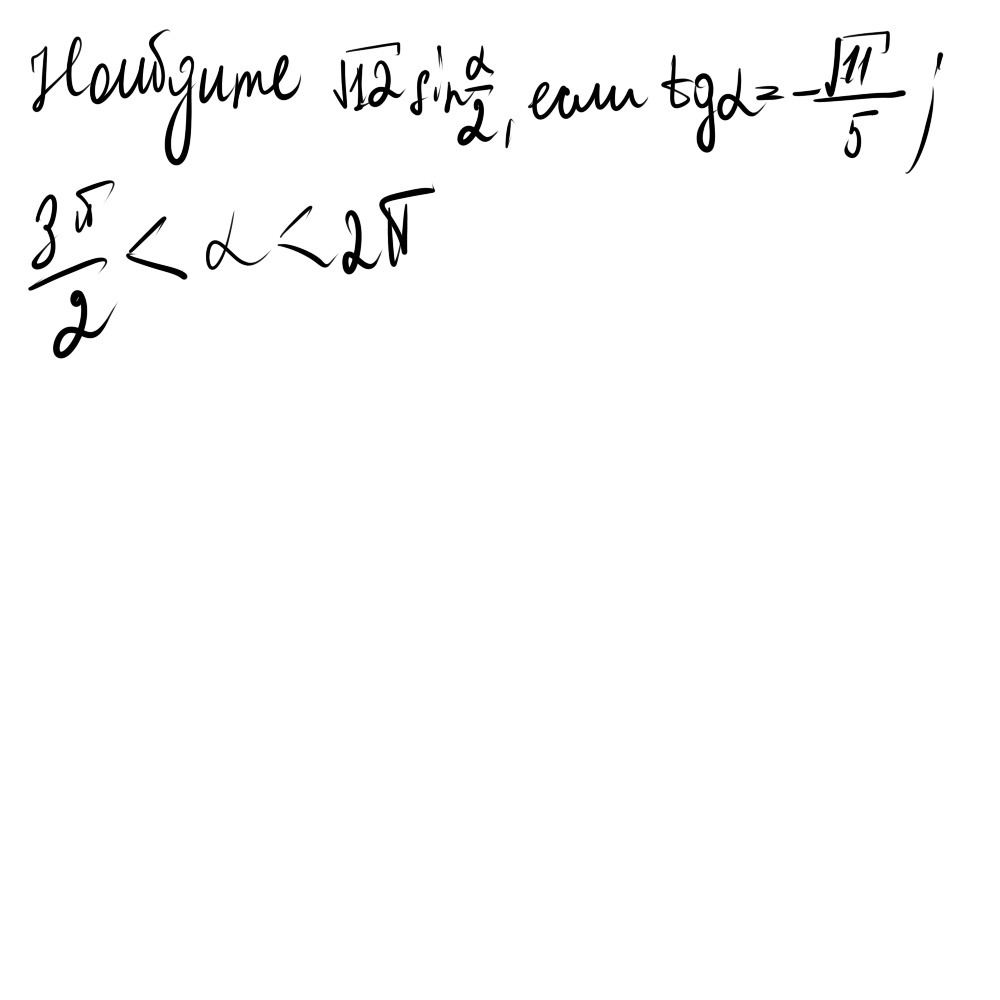 Найдите √12 sin α/2, если tg α = -√11/5;
3π/2 < α < 2π